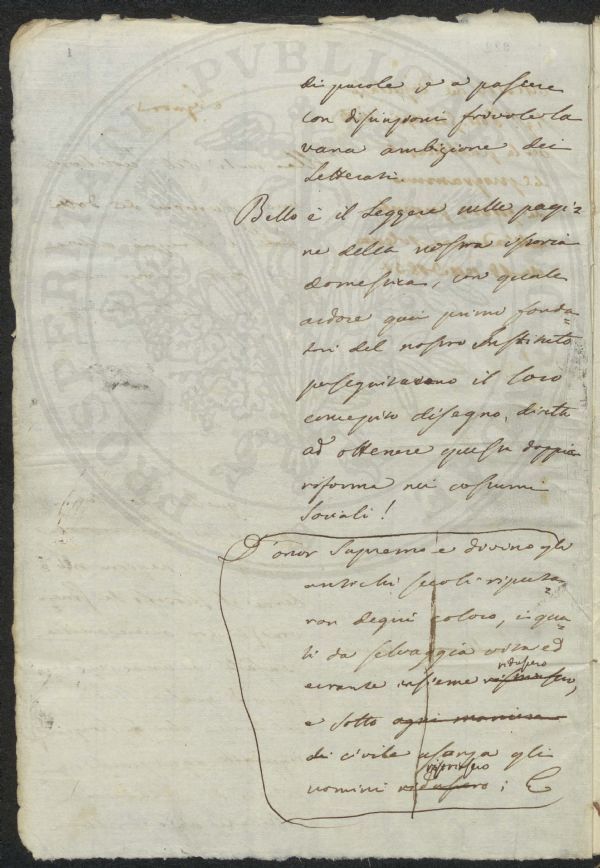 di parole e a pascere
con disquisizioni frivole la
vana ambizione dei
Letterati.
Bello è il leggere nelle pagi=
ne della nostra istoria
domestica, con quale
ardore quei primi fonda=
tori del nostro Instituto
perseguitarono il loro
concepito disegno, diretto
ad ottenere questa doppia
riforma nei costumi
sociali!
D'onor supremo e divino gli
antichi secoli riputa=
ron degni coloro, i qua=
li da selvaggia vita ed
errante insieme ridussero,
e sotto ogni maniera
di civile usanza gli
uomini ridussero; E